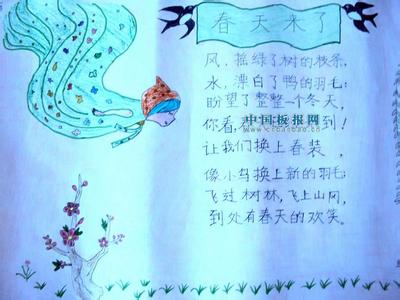 春天来了
风，摇绿了树的枝条，
水，漂白了鸭的羽毛；
盼望了整整一个冬天，
你看，到！
中国板报网
让我们换上春装，
像小鸟换上新的羽毛；
飞过树林，飞上山冈，
到处有春天的欢笑。